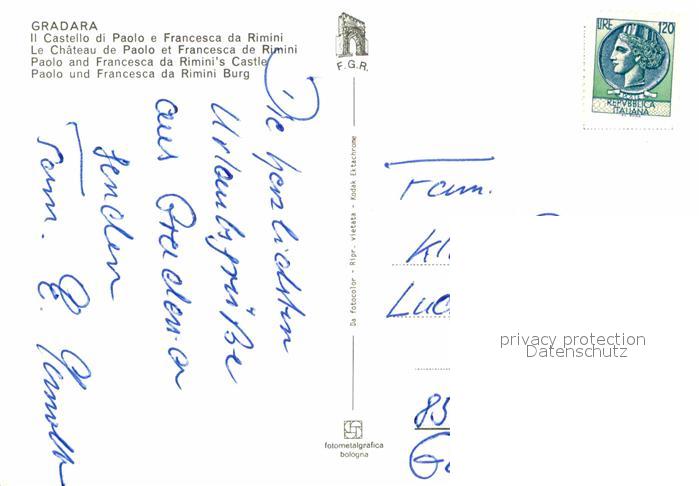 GRADARA
Il Castello di Paolo e Francesca da Rimini
Le Château de Paolo et Francesca de Rimini
Paolo and Francesca da Rimini's Castle
Paolo und Francesca da Rimini Burg
F.G.R.
LIRE 120
REPVBBLICA
ITALIANA
Die herzlichsten
Urlaubsgrüße
aus Gradara
senden
Fam. E.
Da fotocolor - Ripr. vietata - Kodak Ektachrome
fotometalgrafica
bologna
Fam.
Kl
Luc
85
privacy protection
Datenschutz